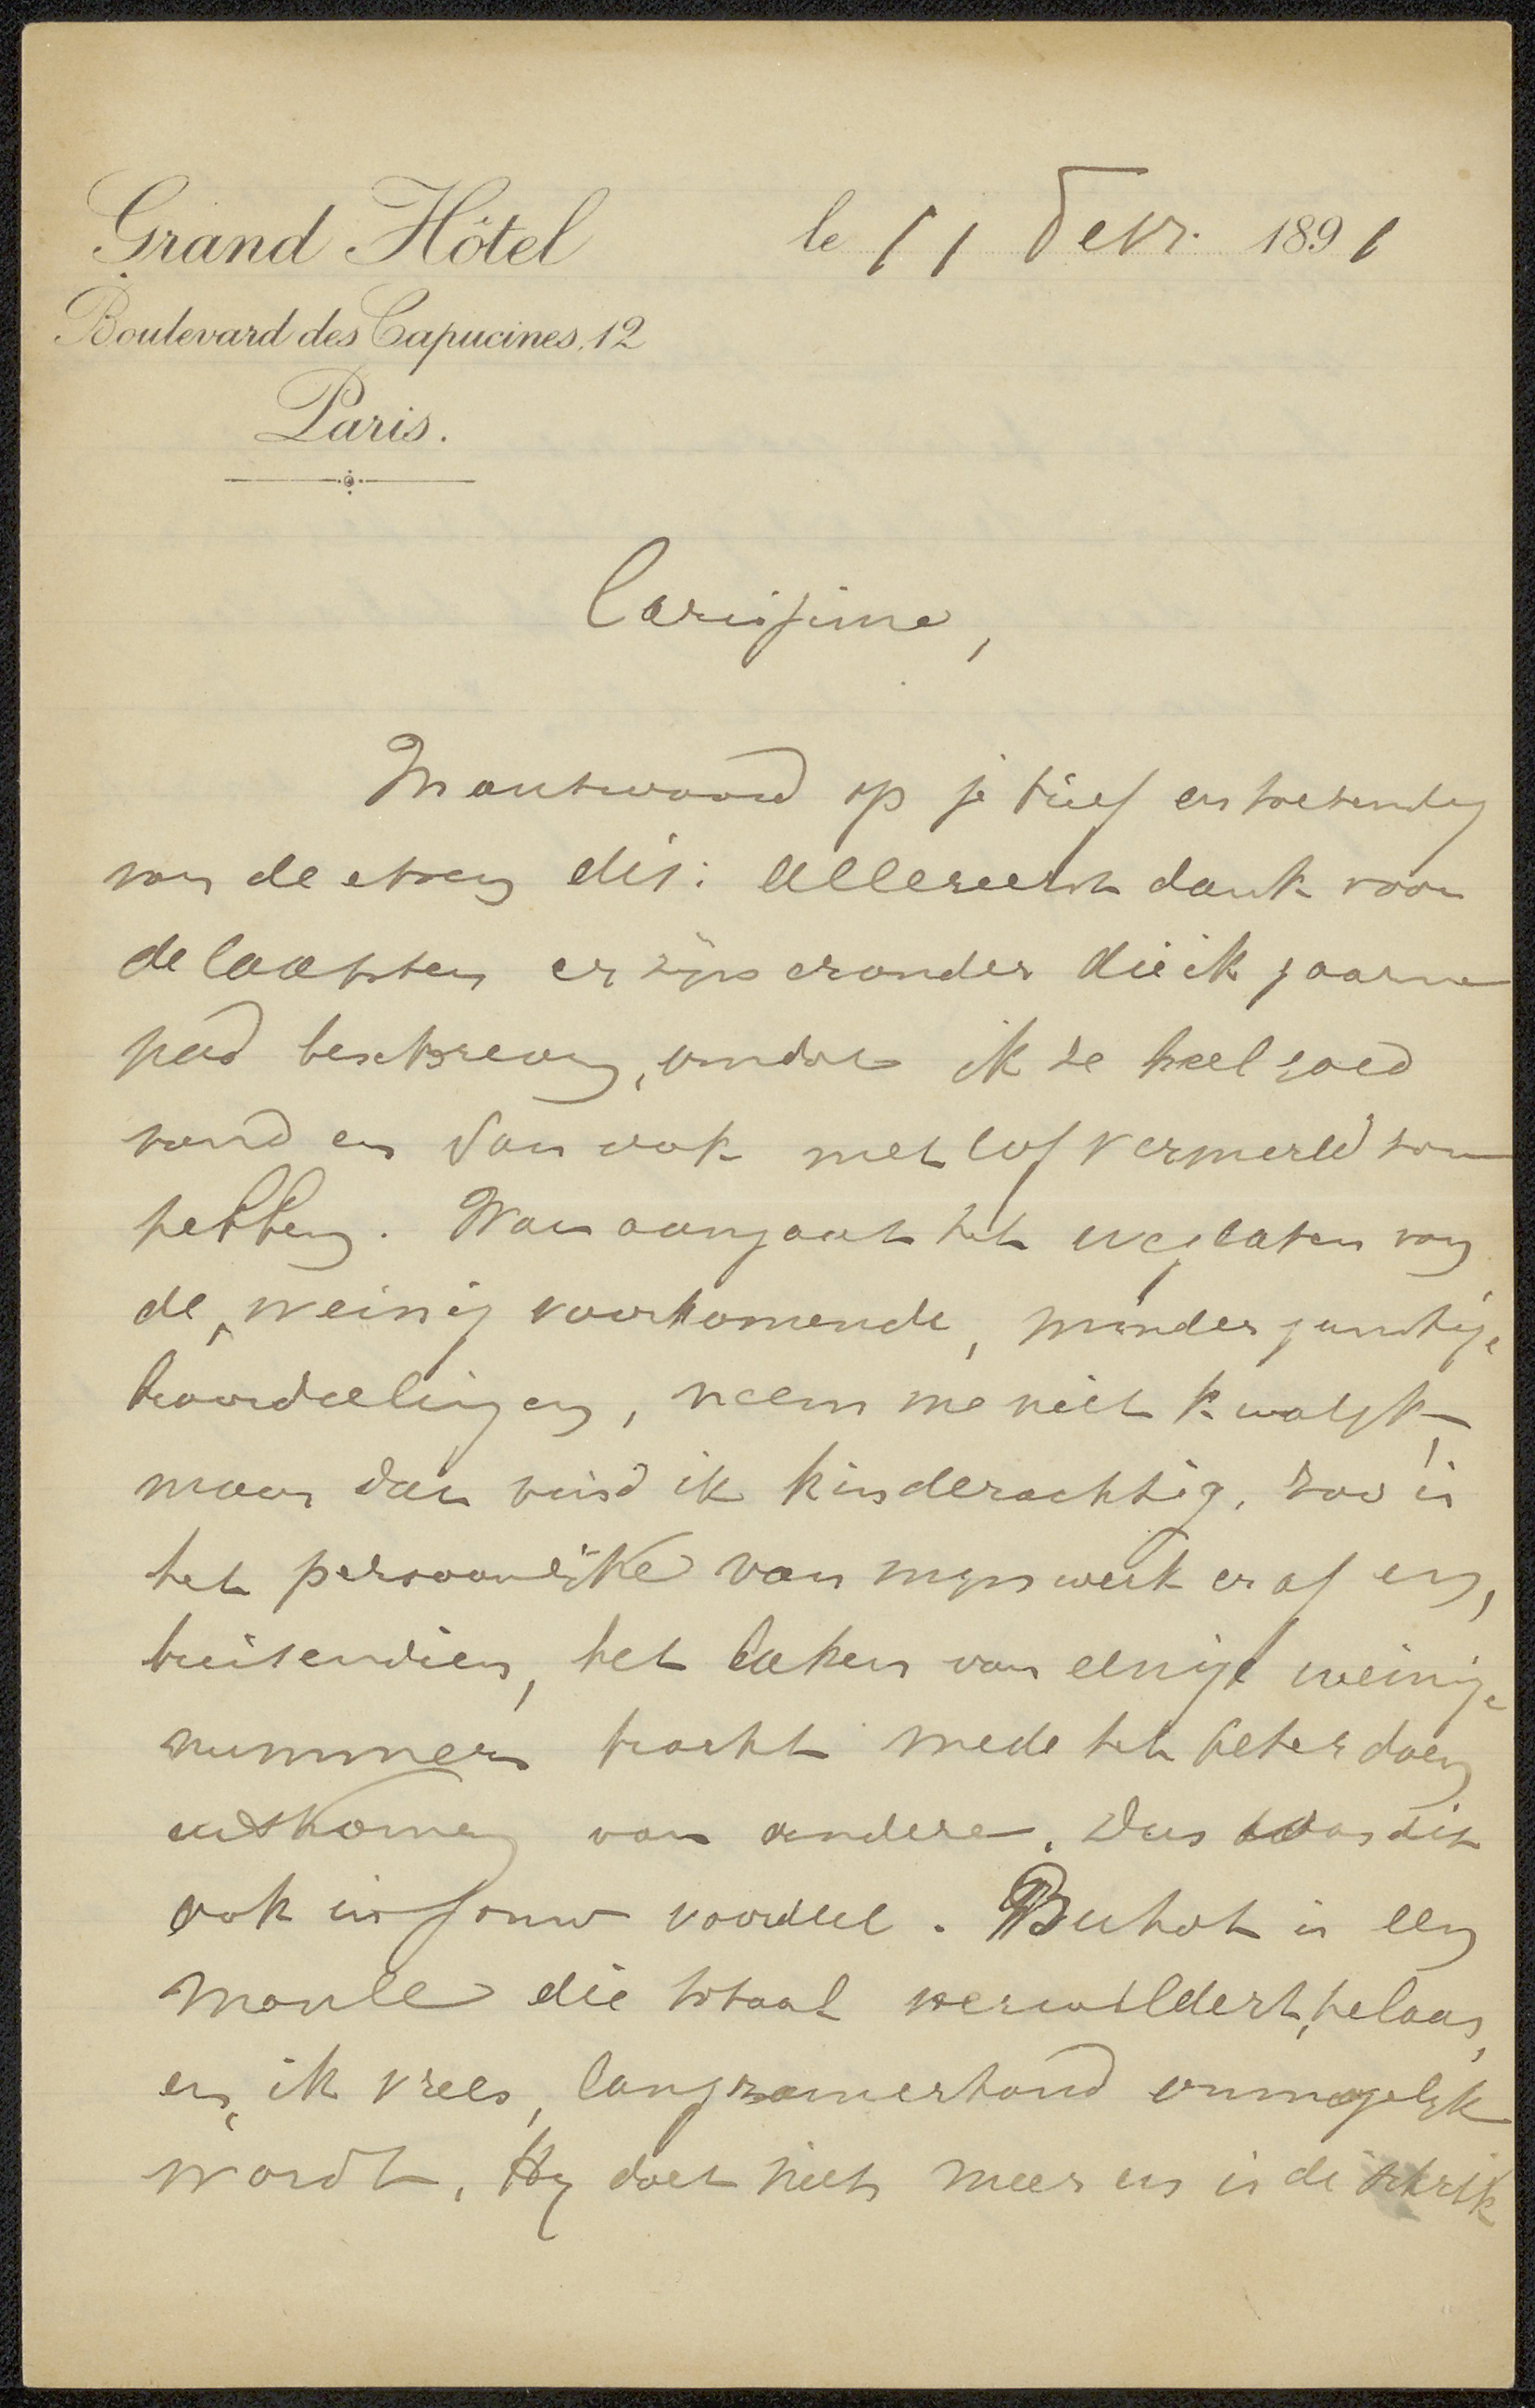 Grand Hôtel
le 11 Febr. 1891
Boulevard des Capucines, 12
Paris.
Carissime,
In antwoord op je brief en toezending
van de etsen dit: Allereerst dank voor
de laatsten er zijn eronder die ik gaarne
had beschreven, omdat ik ze heel goed
vond en dan ook met lof vermeld zou
hebben. Wat aangaat het weglaten van
de, weinig voorkomende, minder gunstige
beoordeelingen, neem me niet kwalijk,
maar dat vind ik kinderachtig. Zoo is
het persoonlijke van mijn werk er af en,
buitendien, het laken van eenige weinige
nummers bracht mede het beter doen
uitkomen van andere. Dus was dit
ook in jouw voordeel. Buhot is een
man die totaal verwildert, helaas,
en, ik vrees, langzamerhand onmogelijk
wordt. Hy doet niets meer en is de schrik